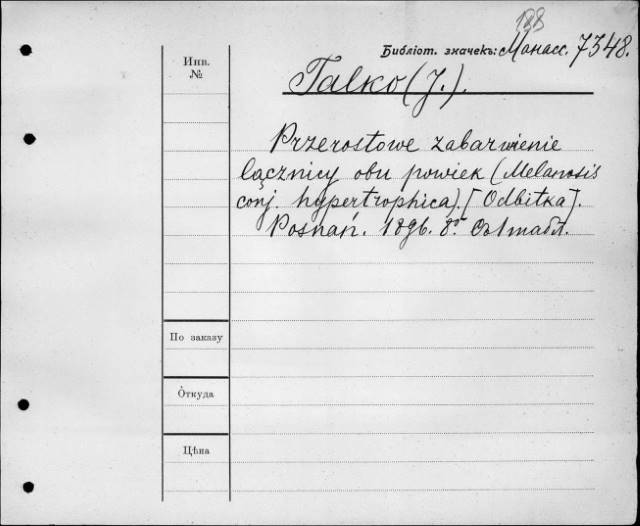 188
Библіот. значекъ: Монасс. 7348.
Инв.
№
Talko (J.).
Przerostowe zabarwienie
łącznicy obu powiek (Melanosis
conj. hypertrophica). [Odbitka].
Poznań. 1896. 8º. Съ 1 табл.
По заказу
Откуда
Цѣна